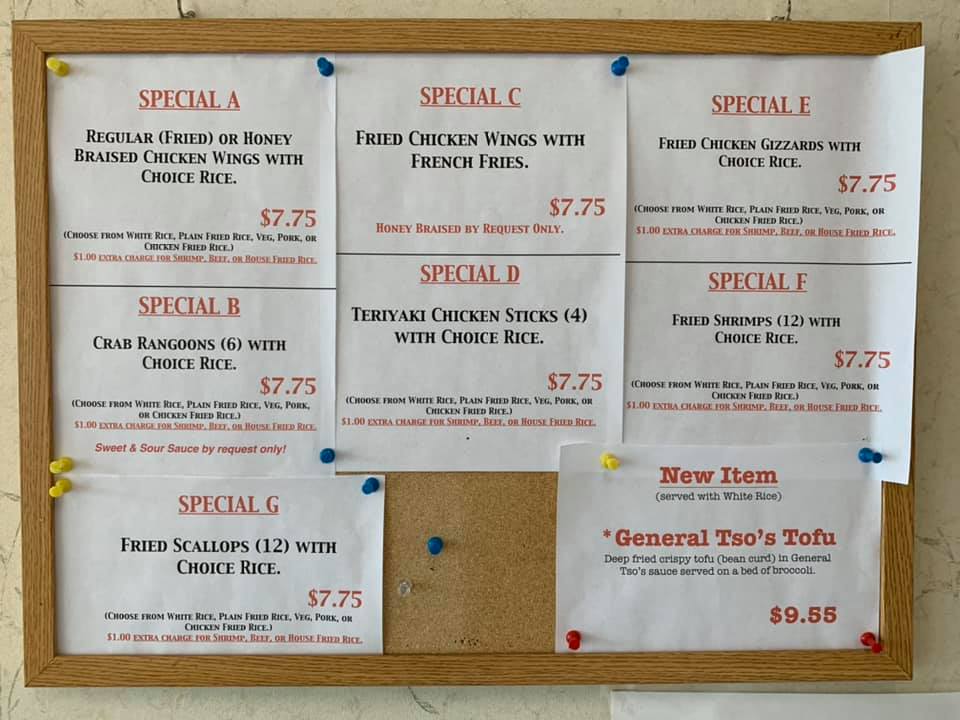 SPECIAL A
REGULAR (FRIED) OR HONEY
BRAISED CHICKEN WINGS WITH
CHOICE RICE.
$7.75
(CHOOSE FROM WHITE RICE, PLAIN FRIED RICE, VEG, PORK, OR
CHICKEN FRIED RICE.)
$1.00 EXTRA CHARGE FOR SHRIMP, BEEF, OR HOUSE FRIED RICE.
SPECIAL B
CRAB RANGOONS (6) WITH
CHOICE RICE.
$7.75
(CHOOSE FROM WHITE RICE, PLAIN FRIED RICE, VEG, PORK,
OR CHICKEN FRIED RICE.)
$1.00 EXTRA CHARGE FOR SHRIMP, BEEF, OR HOUSE FRIED RICE.
Sweet & Sour Sauce by request only!
SPECIAL C
FRIED CHICKEN WINGS WITH
FRENCH FRIES.
$7.75
HONEY BRAISED BY REQUEST ONLY.
SPECIAL D
TERIYAKI CHICKEN STICKS (4)
WITH CHOICE RICE.
$7.75
(CHOOSE FROM WHITE RICE, PLAIN FRIED RICE, VEG, PORK, OR
CHICKEN FRIED RICE.)
$1.00 EXTRA CHARGE FOR SHRIMP, BEEF, OR HOUSE FRIED RICE.
SPECIAL E
FRIED CHICKEN GIZZARDS WITH
CHOICE RICE.
$7.75
(CHOOSE FROM WHITE RICE, PLAIN FRIED RICE, VEG, PORK, OR
CHICKEN FRIED RICE.)
$1.00 EXTRA CHARGE FOR SHRIMP, BEEF, OR HOUSE FRIED RICE.
SPECIAL F
FRIED SHRIMPS (12) WITH
CHOICE RICE.
$7.75
(CHOOSE FROM WHITE RICE, PLAIN FRIED RICE, VEG, PORK, OR
CHICKEN FRIED RICE.)
$1.00 EXTRA CHARGE FOR SHRIMP, BEEF, OR HOUSE FRIED RICE.
SPECIAL G
FRIED SCALLOPS (12) WITH
CHOICE RICE.
$7.75
(CHOOSE FROM WHITE RICE, PLAIN FRIED RICE, VEG, PORK, OR
CHICKEN FRIED RICE.)
$1.00 EXTRA CHARGE FOR SHRIMP, BEEF, OR HOUSE FRIED RICE.
New Item
(served with White Rice)
*General Tso's Tofu
Deep fried crispy tofu (bean curd) in General
Tso's sauce served on a bed of broccoli.
$9.55